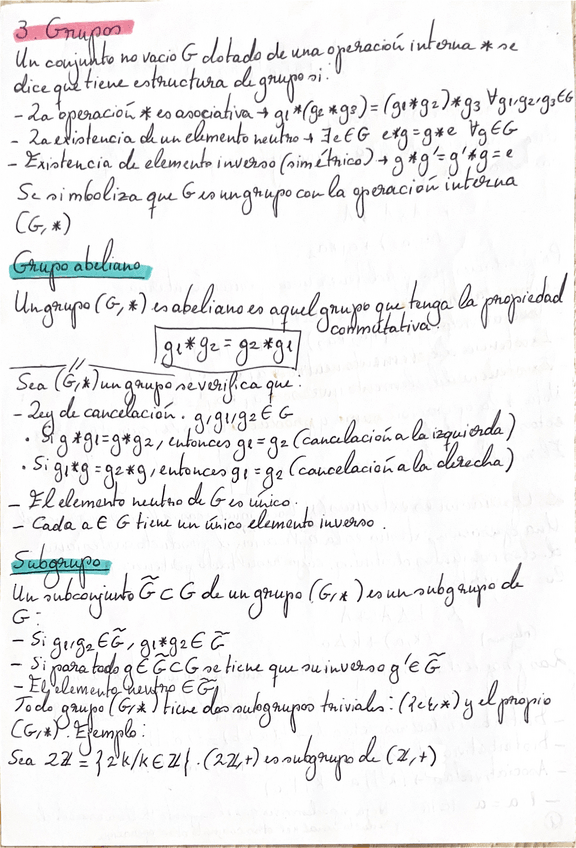 3 Grupos
Un conjunto no vacio G dotado de una operación interna * se
dice que tiene estructura de grupo si:
- La operación * es asociativa → g₁*(g₂*g₃) = (g₁*g₂)*g₃ ∀g₁,g₂,g₃∈G
- La existencia de un elemento neutro → ∃e∈G e*g=g*e ∀g∈G
- Existencia de elemento inverso (simétrico) → g*g'=g'*g=e
Se simboliza que G es un grupo con la operación interna
(G,*)
Grupo abeliano
Un grupo (G,*) es abeliano es aquel grupo que tenga la propiedad
conmutativa.
g₁*g₂ = g₂*g₁
Sea (G,*) un grupo se verifica que:
- Ley de cancelación. g,g₁,g₂ ∈ G
· Si g*g₁=g*g₂, entonces g₁=g₂ (cancelación a la izquierda)
· Si g₁*g=g₂*g, entonces g₁=g₂ (cancelación a la derecha)
- El elemento neutro de G es único.
- Cada a ∈ G tiene un único elemento inverso.
Subgrupo
Un subconjunto G̃ ⊂ G de un grupo (G,*) es un subgrupo de
G:
- Si g₁,g₂∈G̃, g₁*g₂∈G̃
- Si para todo g∈G̃⊂G se tiene que su inverso g'∈G̃
- El elemento neutro ∈ G̃
Todo grupo (G,*) tiene dos subgrupos triviales: ({e},*) y el propio
(G,*). Ejemplo:
Sea 2ℤ = {2k/k∈ℤ}. (2ℤ,+) es subgrupo de (ℤ,+)